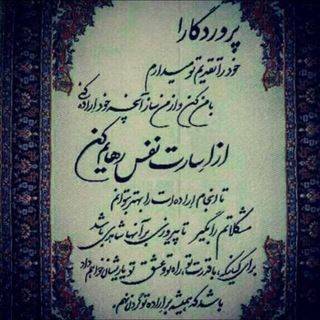 پروردگارا
خود را تقدیم تو میدارم
با من کن و از من ساز آنچه خود اراده کنی
از اسارت نفس رهایم کن
تا انجام اراده ات را بهتر بتوانم
مشکلاتم را بگیر تا پیروزی بر آنها شاهدی باشد
برای آنانکه با قدرت تو، راه تو و عشق تو یاریشان خواهم داد
باشد که همیشه بر اراده تو گردن نهم.